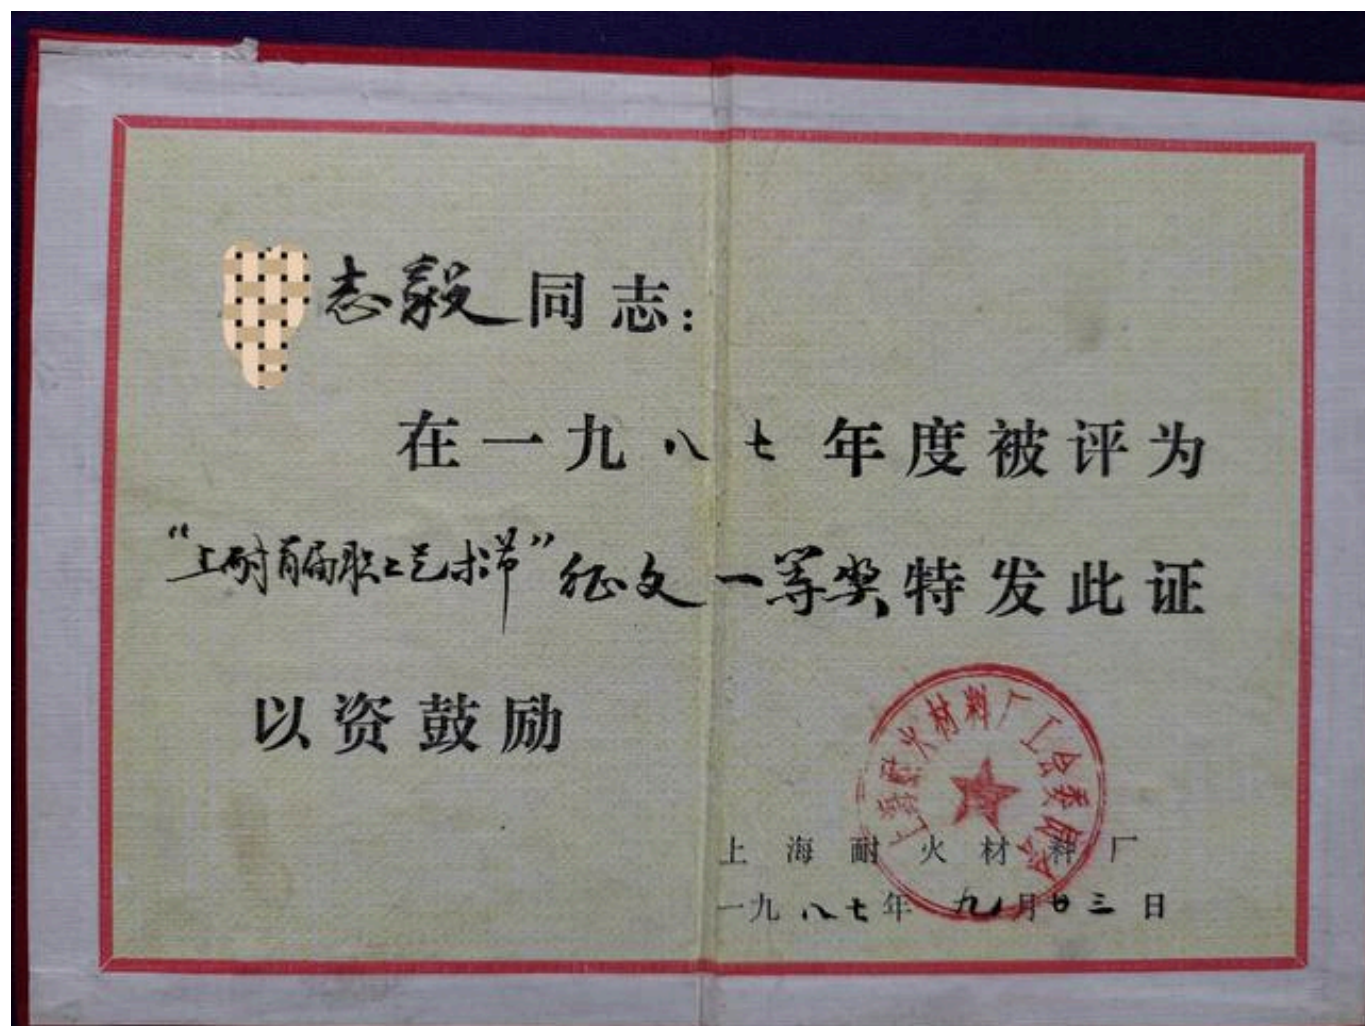 志毅同志：
在一九八七年度被评为
“上耐首届职工艺术节”征文一等奖特发此证
以资鼓励
上海耐火材料厂工会委员会
上海耐火材料厂
一九八七年九月廿三日